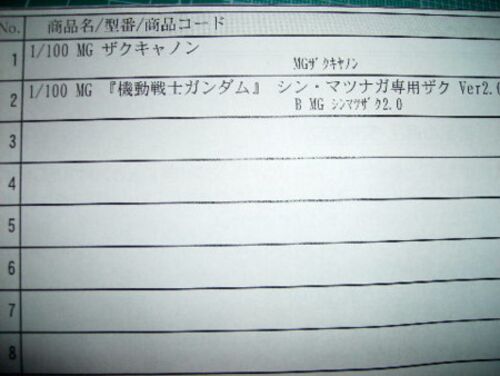 No. 商品名/型番/商品コード
1 1/100 MG ザクキャノン
MGザクキヤノン
2 1/100 MG 『機動戦士ガンダム』 シン・マツナガ専用ザク Ver2.0
B MG シンマツザク2.0
3
4
5
6
7
8